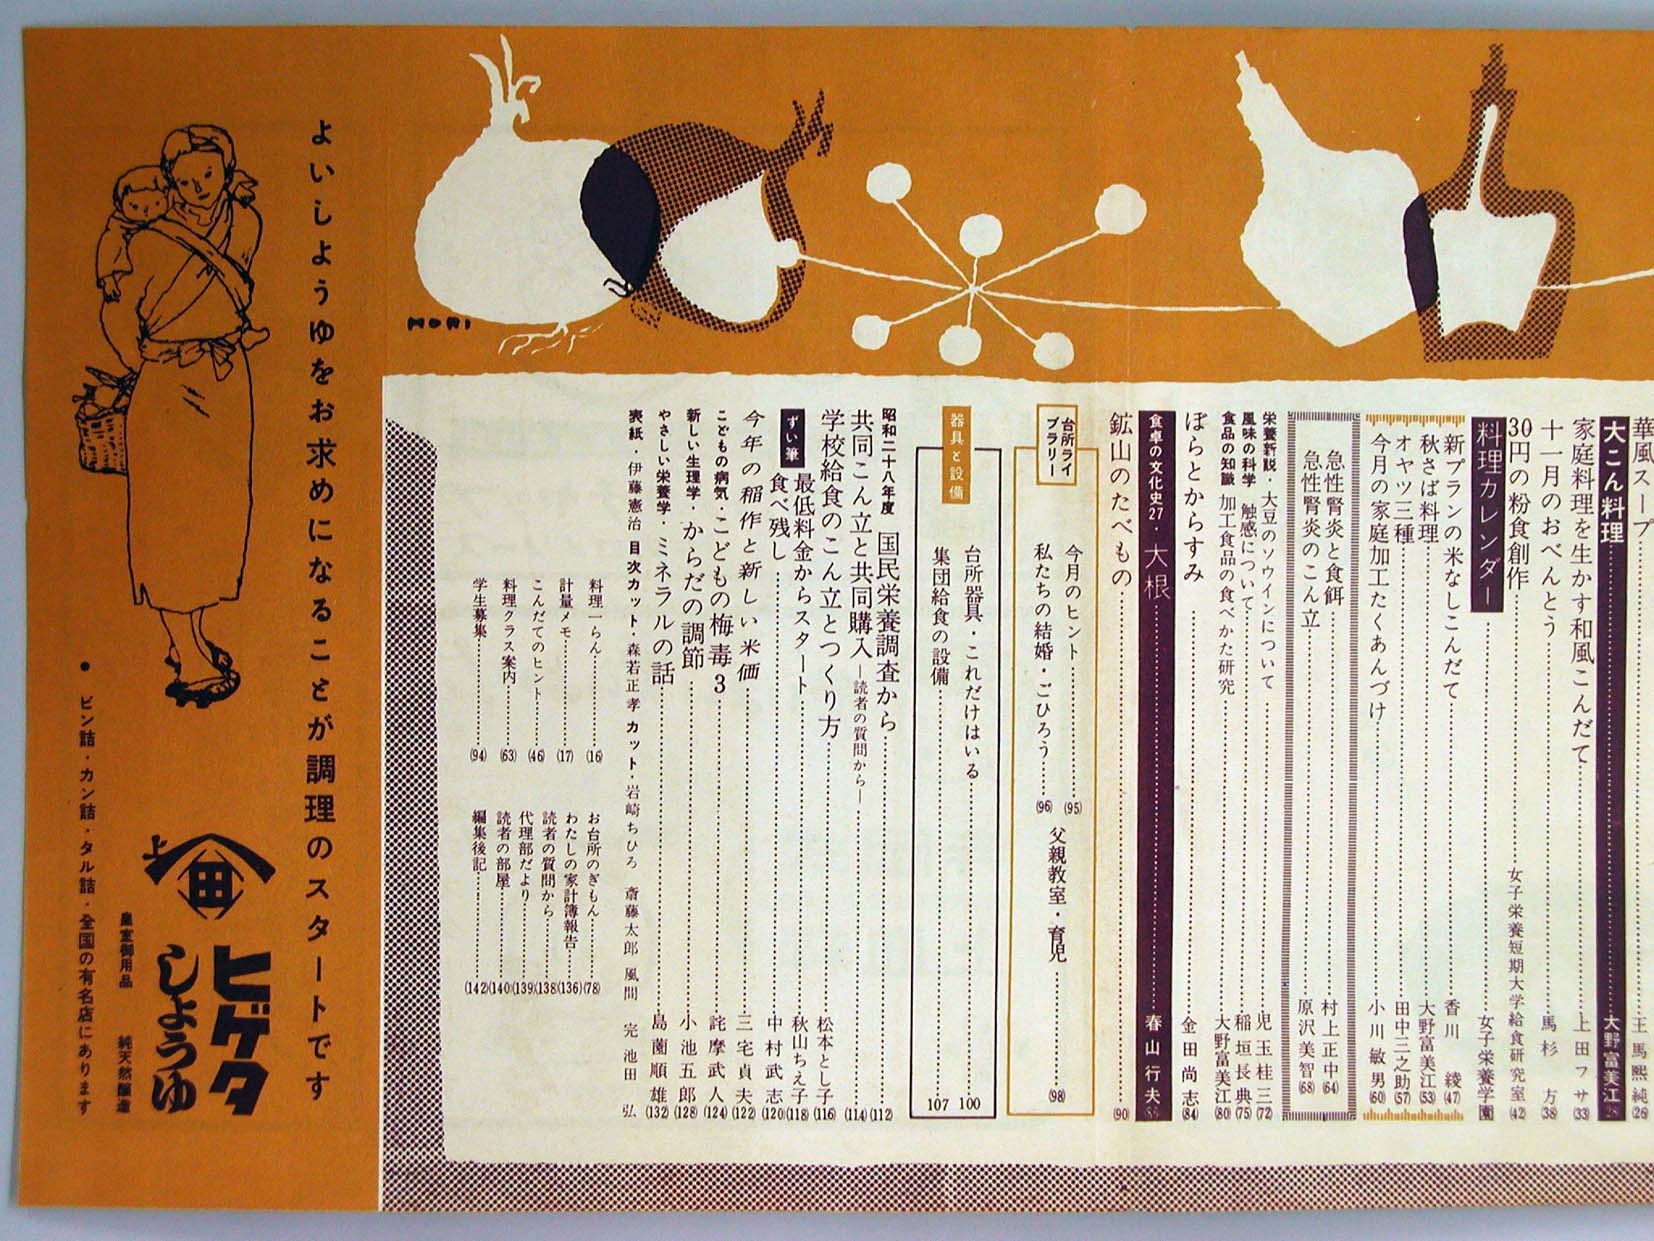 華風スープ……王馬熙純(26)
大こん料理……大野富美江(28)
家庭料理を生かす和風こんだて……上田フサ(33)
十一月のおべんとう……馬杉方(38)
30円の粉食創作……女子栄養短期大学給食研究室(42)
料理カレンダー……女子栄養学園
新プランの米なしこんだて……香川綾(47)
秋さば料理……大野富美江(53)
オヤツ三種……田中三之助(57)
今月の家庭加工たくあんづけ……小川敏男(60)
急性腎炎と食餌……村上正中(64)
急性腎炎のこん立……原沢美智(68)
栄養新説・大豆のソウインについて……児玉桂三(72)
風味の科学 触感について……稲垣長典(75)
食品の知識 加工食品の食べかた研究……大野富美江(80)
ぼらとからすみ……金田尚志(84)
食卓の文化史27・大根……春山行夫(86)
鉱山のたべもの……(90)
台所ライブラリー
今月のヒント……(95)
私たちの結婚・ごひろう……(96)
父親教室・育児……(98)
器具と設備
台所器具・これだけはいる……100
集団給食の設備……107
昭和二十八年度 国民栄養調査から……(112)
共同こん立と共同購入―読者の質問から―……(114)
学校給食のこん立とつくり方……松本とし子(116)
ずい筆
最低料金からスタート……秋山ちえ子(118)
食べ残し……中村武志(120)
今年の稲作と新しい米価……三宅貞夫(122)
こどもの病気・こどもの梅毒3……詫摩武人(124)
新しい生理学・からだの調節……小池五郎(128)
やさしい栄養学・ミネラルの話……島薗順雄(132)
表紙・伊藤憲治 目次カット・森若正孝 カット・岩崎ちひろ 斎藤太郎 風間完 池田弘
料理一らん……(16)
計量メモ……(17)
こんだてのヒント……(46)
料理クラス案内……(63)
学生募集……(94)
お台所のぎもん……(78)
わたしの家計簿報告……(136)
読者の質問から……(138)
代理部だより……(139)
読者の部屋……(140)
編集後記……(142)
MORI
よいしようゆをお求めになることが調理のスタートです
上
田
ヒゲタ
しょうゆ
皇室御用品 純天然醸造
●ビン詰・カン詰・タル詰・全国の有名店にあります